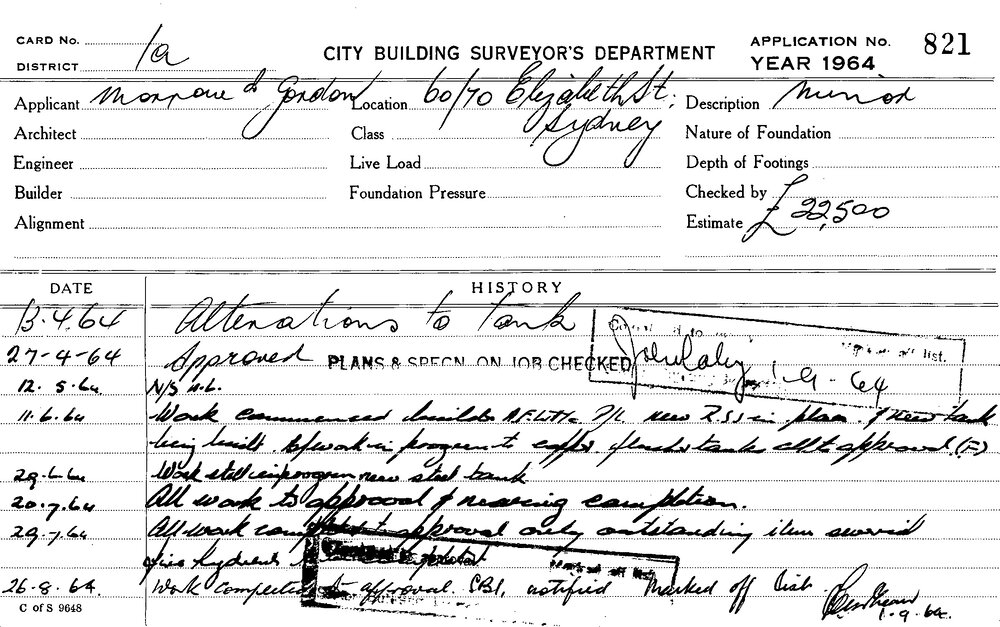 CARD No.
DISTRICT 1a
CITY BUILDING SURVEYOR'S DEPARTMENT
APPLICATION No. 821
YEAR 1964
Applicant & Gordon
Location 60/70 Elizabeth St, Sydney
Description Minor
Architect
Class
Nature of Foundation
Engineer
Live Load
Depth of Footings
Builder
Foundation Pressure
Checked by
Alignment
Estimate £22,500
DATE HISTORY
13.4.64 Alterations to tank
27-4-64 Approved PLANS & SPECN. ON JOB CHECKED
off list.
1-9-64
12.5.64 N/S
11.6.64 Work commenced new R.S.J's in place & new tank
being built. work in progress to tanks all to approval (F)
29.6.64 Work still in progress new steel tank
20.7.64 All work to approval & nearing completion.
29.7.64 All work approval only outstanding item
fire hydrant
Marked off list
26.8.64 Work completed to approval. CBI, notified Marked off list
1.9.64.
C of S 9648